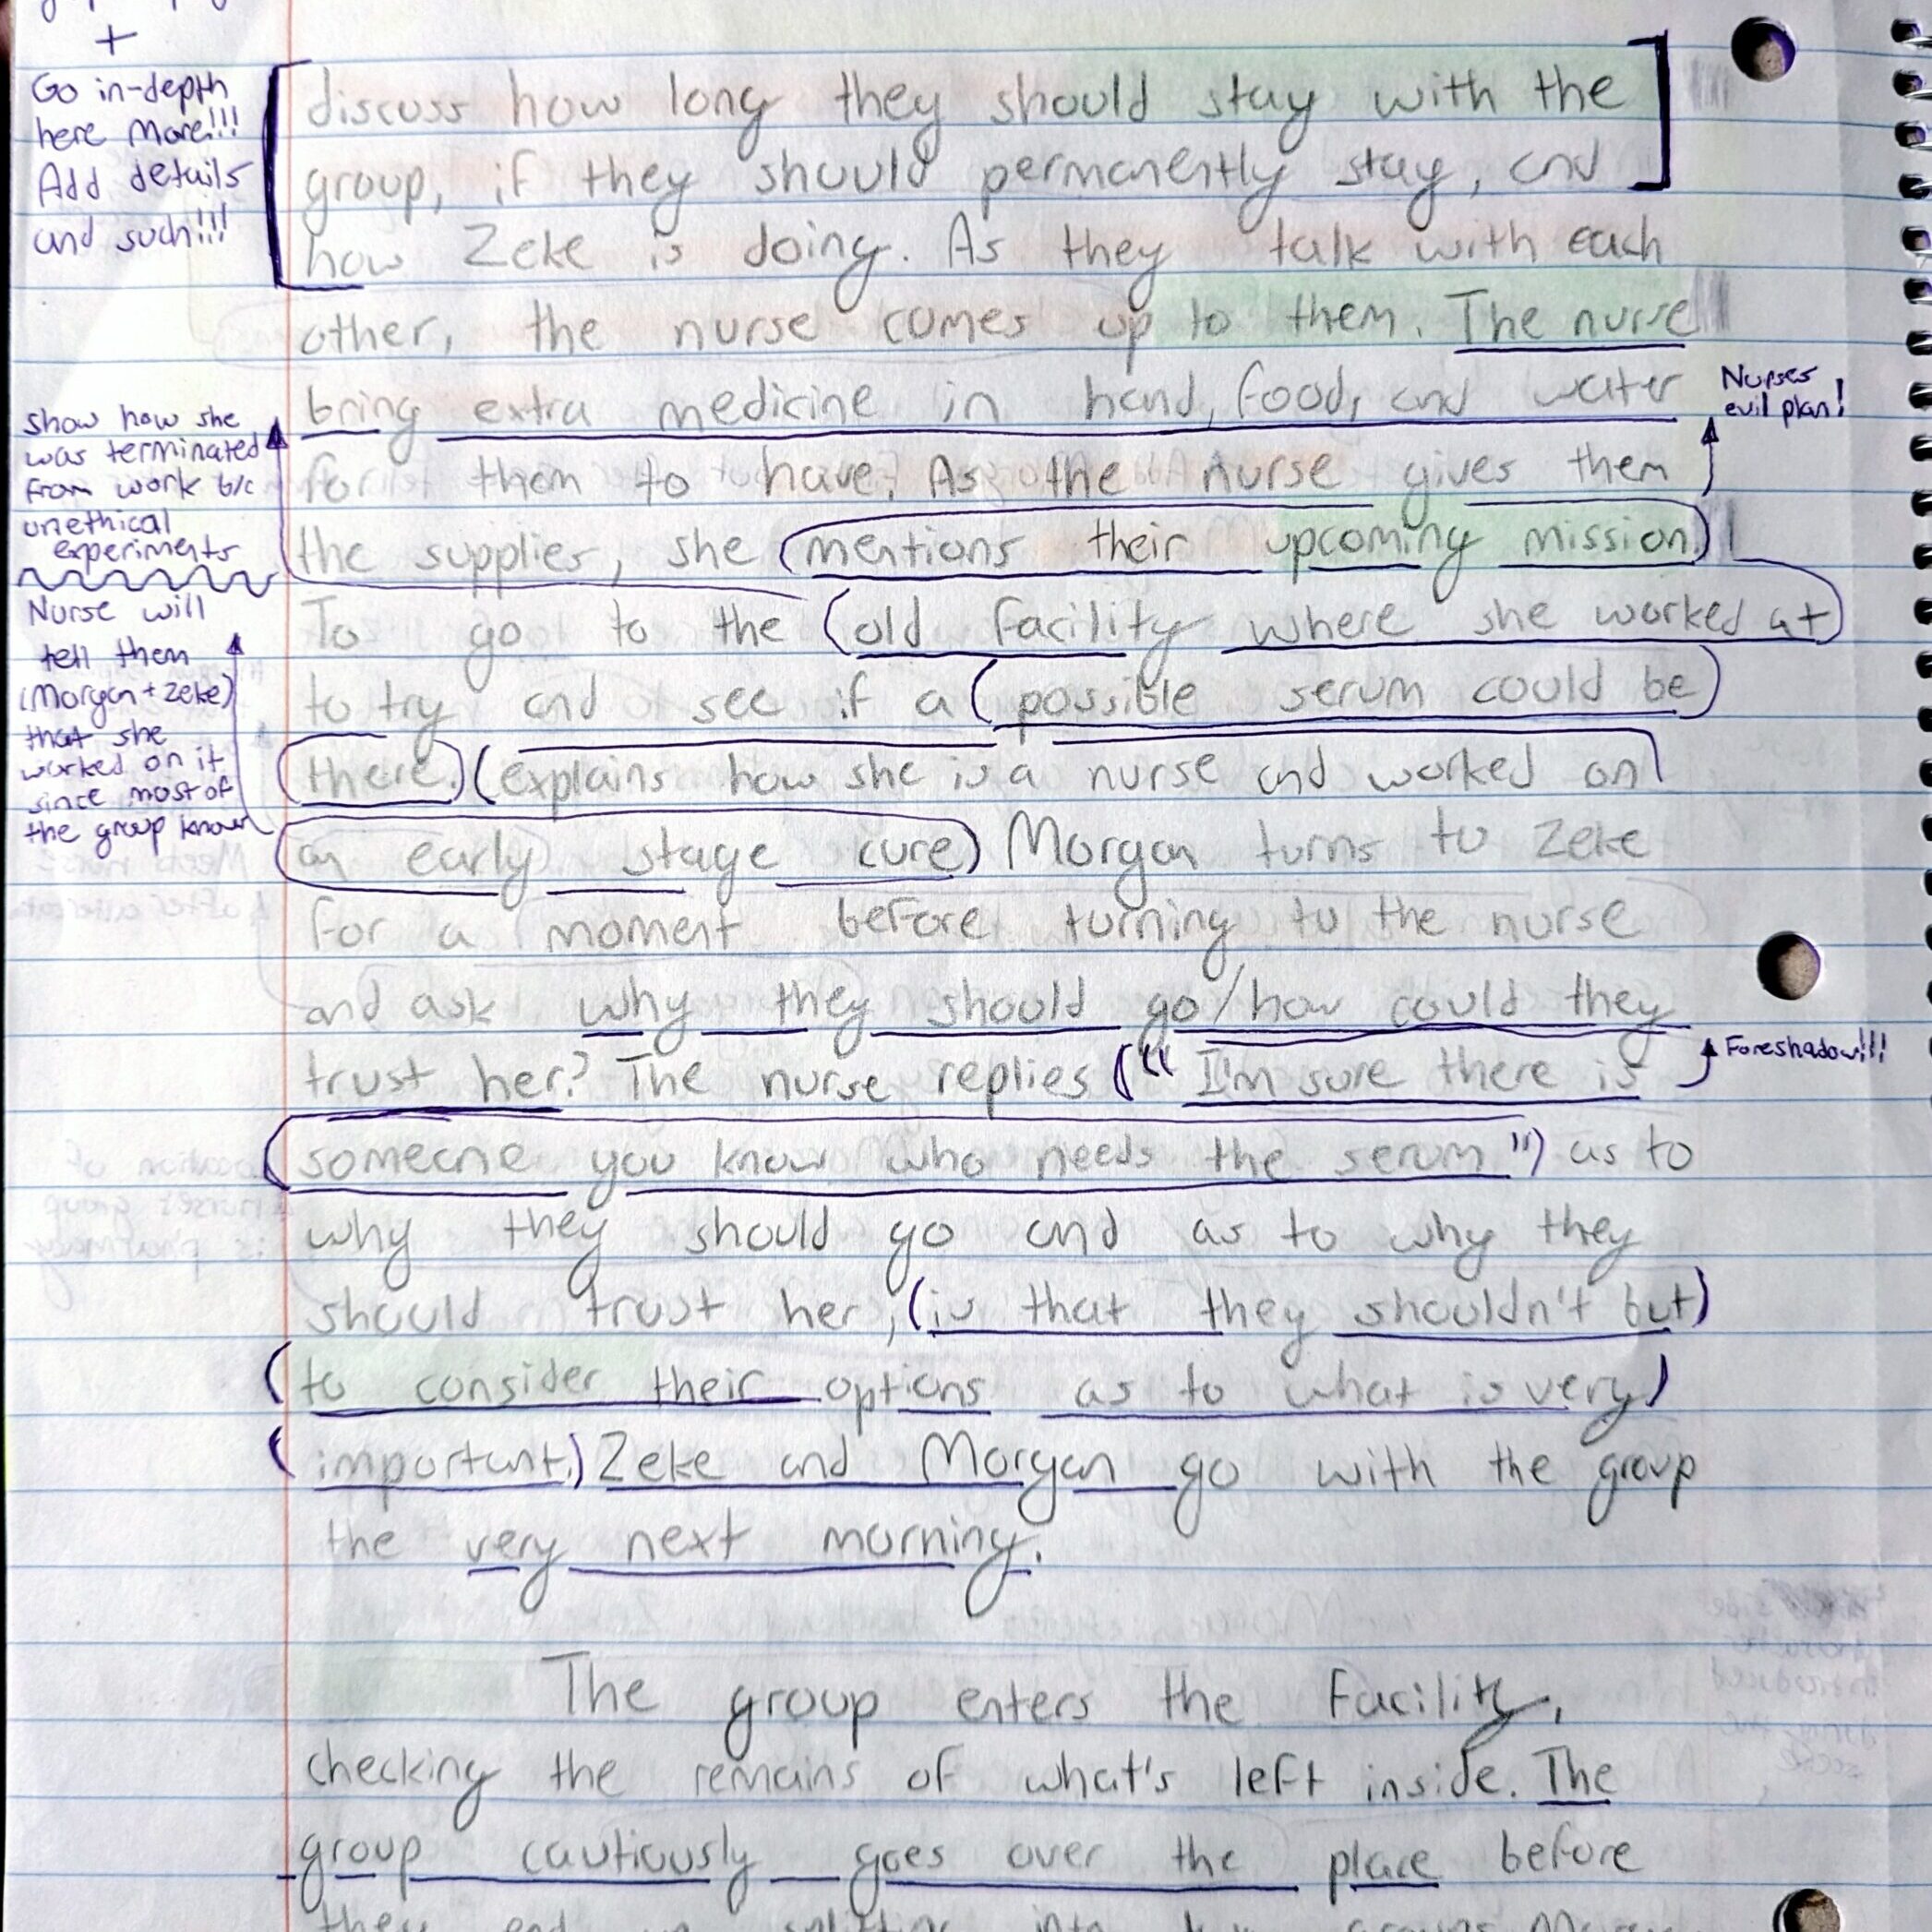 +
Go in-depth
here More!!!
Add details
and such!!!
discuss how long they should stay with the
group, if they should permanently stay, and
how Zeke is doing. As they talk with each
other, the nurse comes up to them. The nurse
bring extra medicine in hand, food, and water
for them to have. As the nurse gives them
the supplies, she (mentions their upcoming mission)
To go to the (old facility where she worked at)
to try and see if a (possible serum could be)
(there.) (explains how she is a nurse and worked on
an early stage cure) Morgan turns to Zeke
for a moment before turning to the nurse
and ask why they should go/how could they
trust her? The nurse replies ("I'm sure there is
(someone you know who needs the serum") as to
why they should go and as to why they
should trust her, (is that they shouldn't but)
(to consider their options as to what is very)
(important.) Zeke and Morgan go with the group
the very next morning.
The group enters the facility,
checking the remains of what's left inside. The
group cautiously goes over the place before
they end up splitting into two groups
show how she
was terminated
from work b/c
unethical
experiments
Nurse will
tell them
(Morgan + Zeke)
that she
worked on it
since most of
the group know
Nurses
evil plan!
Foreshadow!!!